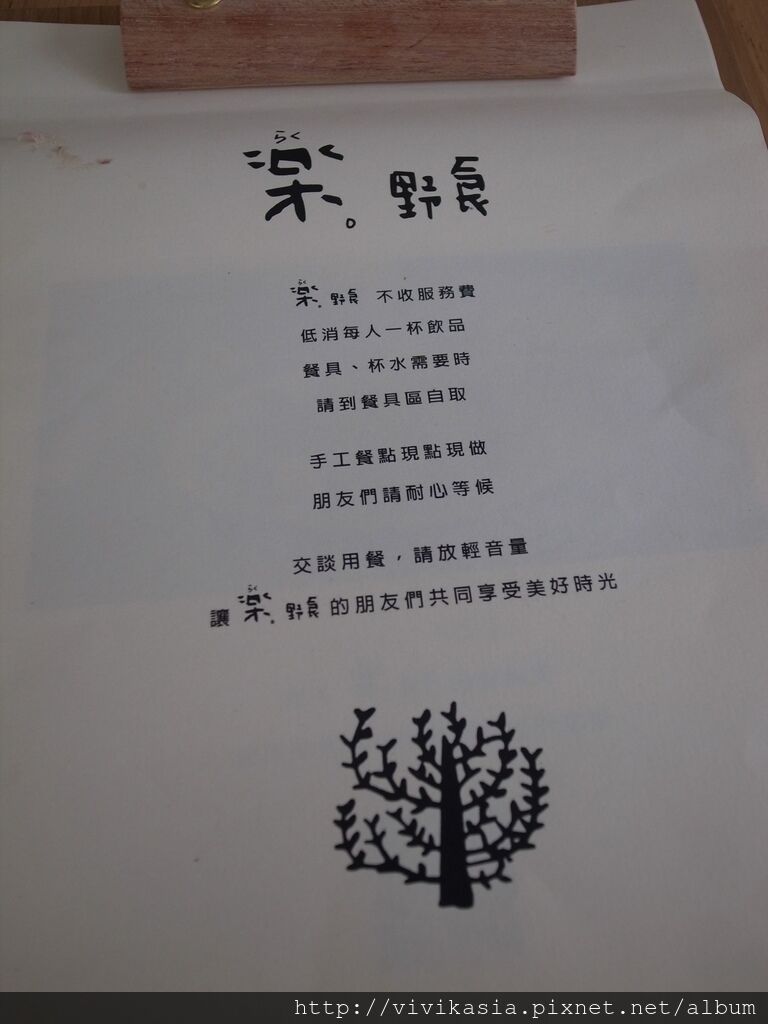 らく
楽。野食
楽。野食 不收服務費
低消每人一杯飲品
餐具、杯水需要時
請到餐具區自取
手工餐點現點現做
朋友們請耐心等候
交談用餐，請放輕音量
讓 楽。野食 的朋友們共同享受美好時光
http://vivikasia.pixnet.net/album